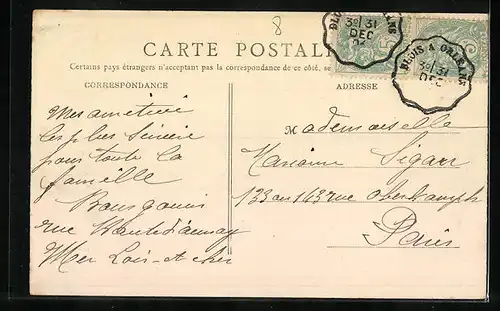 8
CARTE POSTALE
Certains pays étrangers n'acceptant pas la correspondance de ce côté, se
CORRESPONDANCE
ADRESSE
BLOIS A ORLEANS
3º/ 31
DEC
Mes
les plus sincère
pour toute la
famille
rue
Mer Loir-et-cher
Mademoiselle
Sigau
133 ou 163 rue oberkampf
Paris